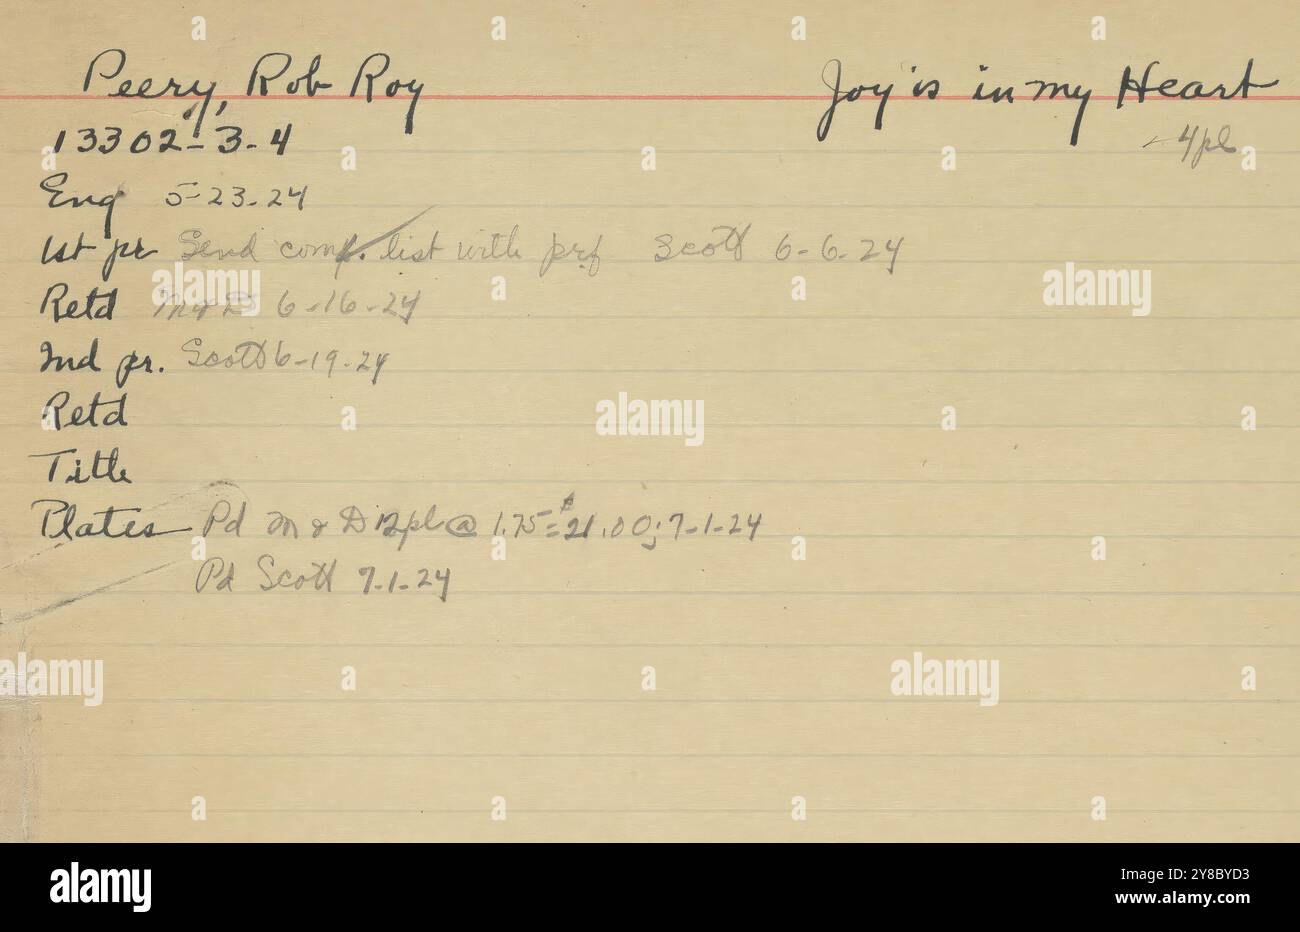 Peery, Rob Roy Joy is in my Heart
13302-3-4 4pl
Eng 5-23-24
1st pr Send comp. list with prf Scott 6-6-24
Retd M & D 6-16-24
2nd pr. Scott 6-19-24
Retd
Title
Plates Pd M & D 12pl @ 1.75 = $21.00; 7-1-24
Pd Scott 7-1-24
alamy
Image ID: 2Y8BYD3
www.alamy.com